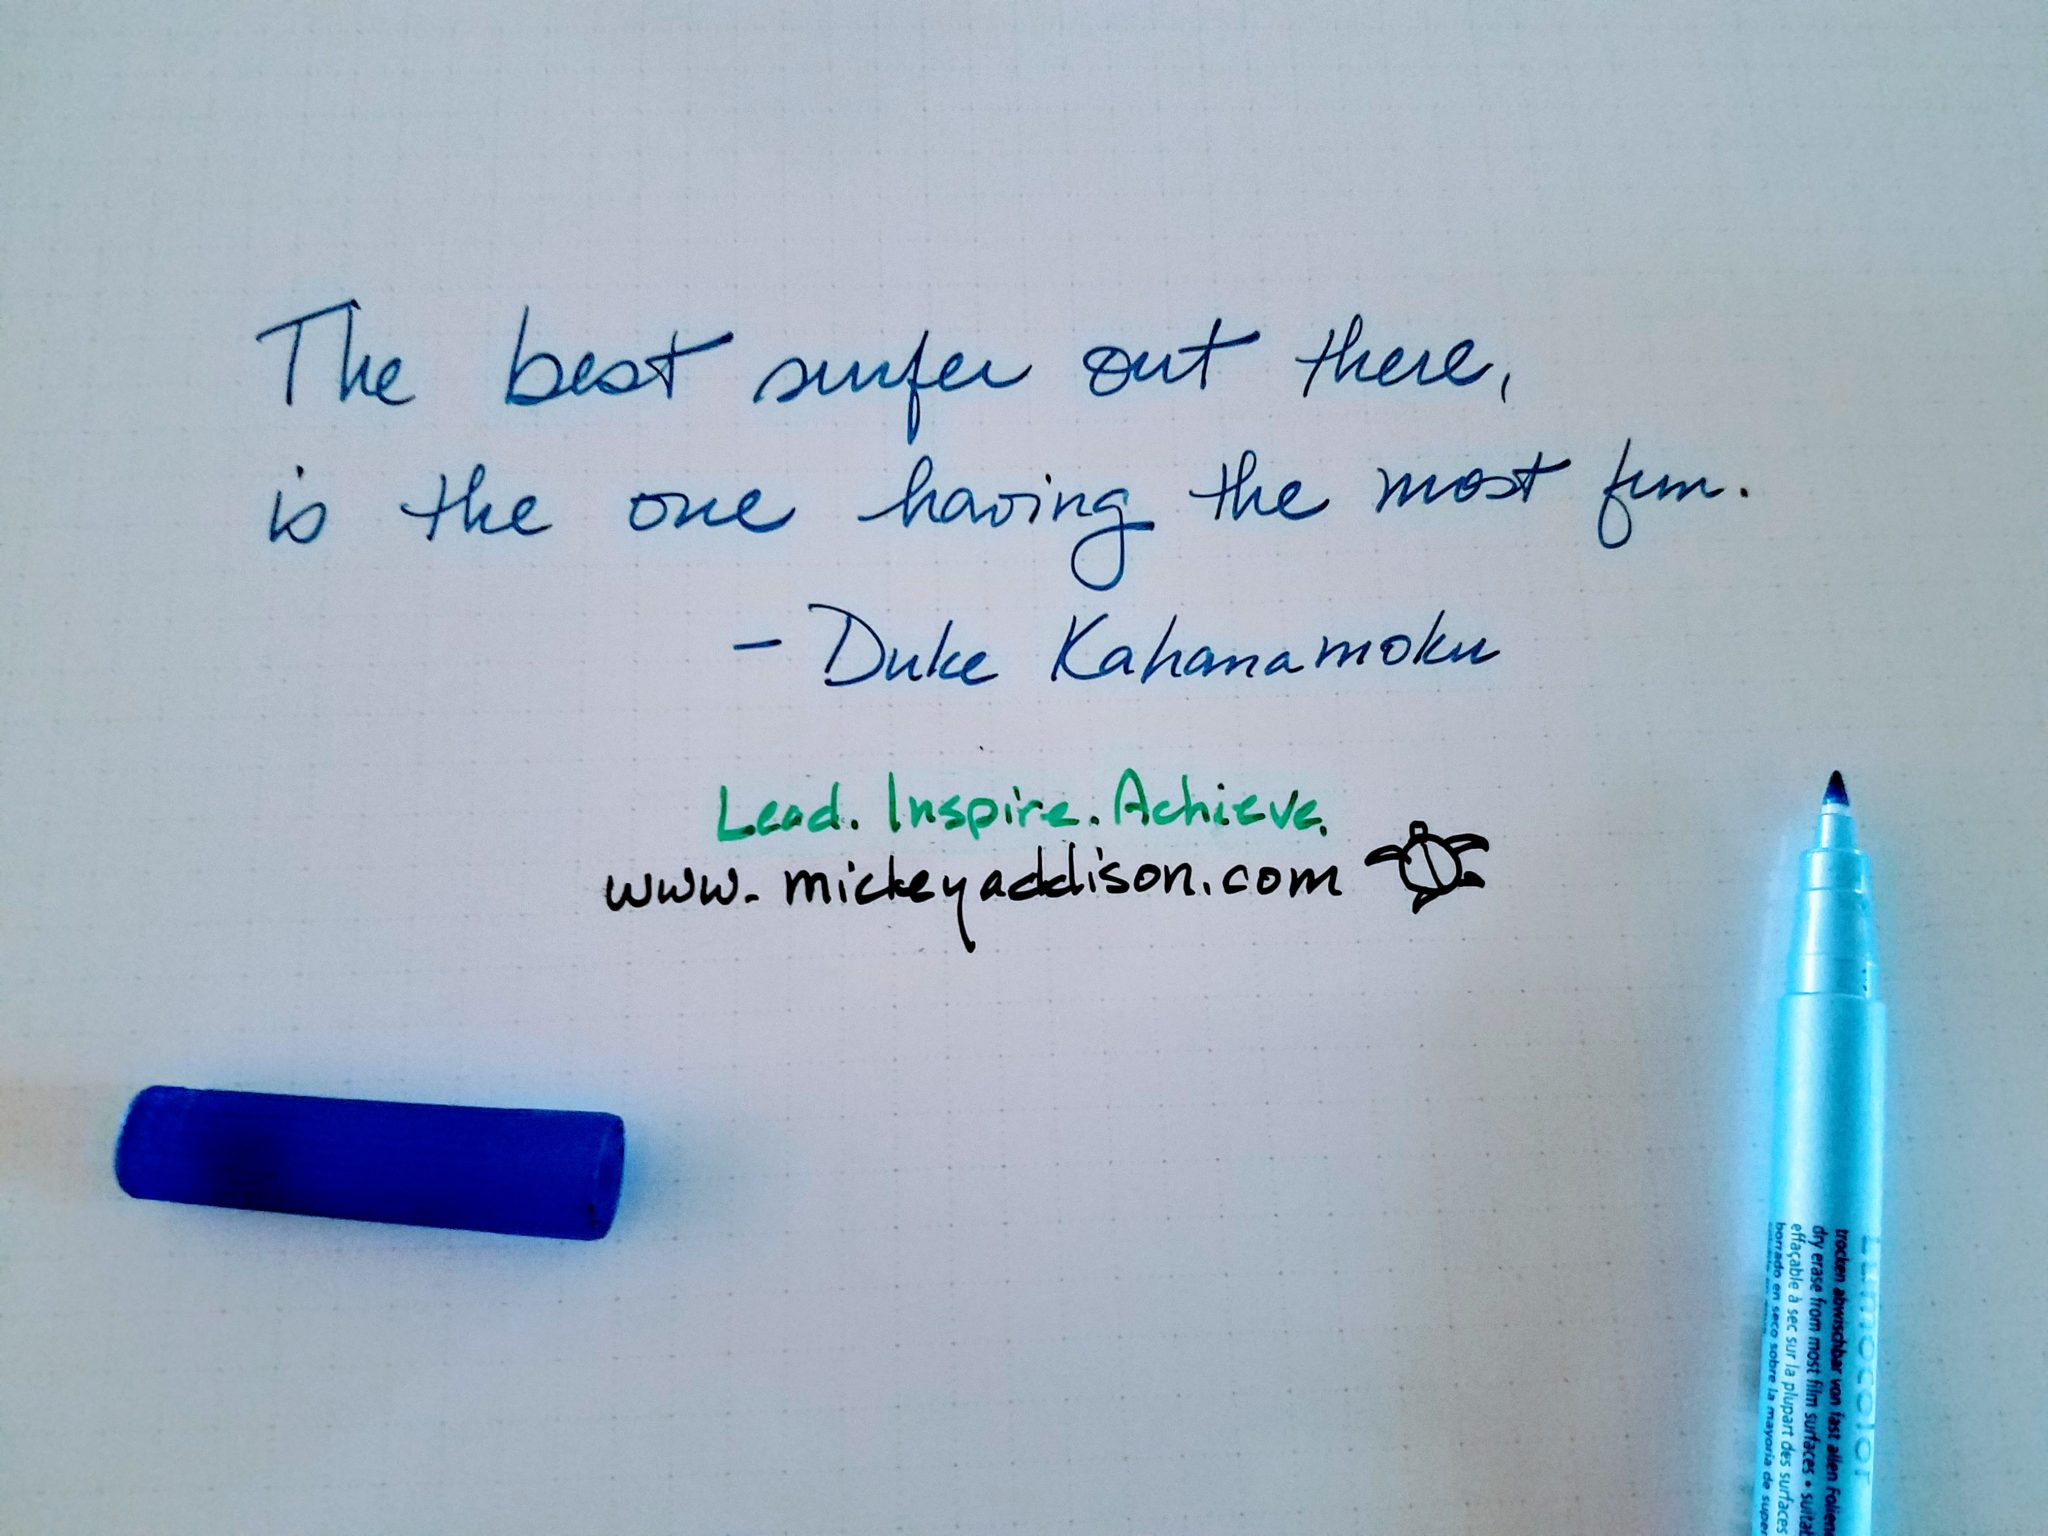 The best surfer out there,
is the one having the most fun.
- Duke Kahanamoku
Lead. Inspire. Achieve.
www.mickeyaddison.com
Lumocolor
trocken abwischbar von fast allen Folien
dry erase from most film surfaces •
effaçable à sec sur la plupart des surfaces
borrado en seco sobre la mayoría de